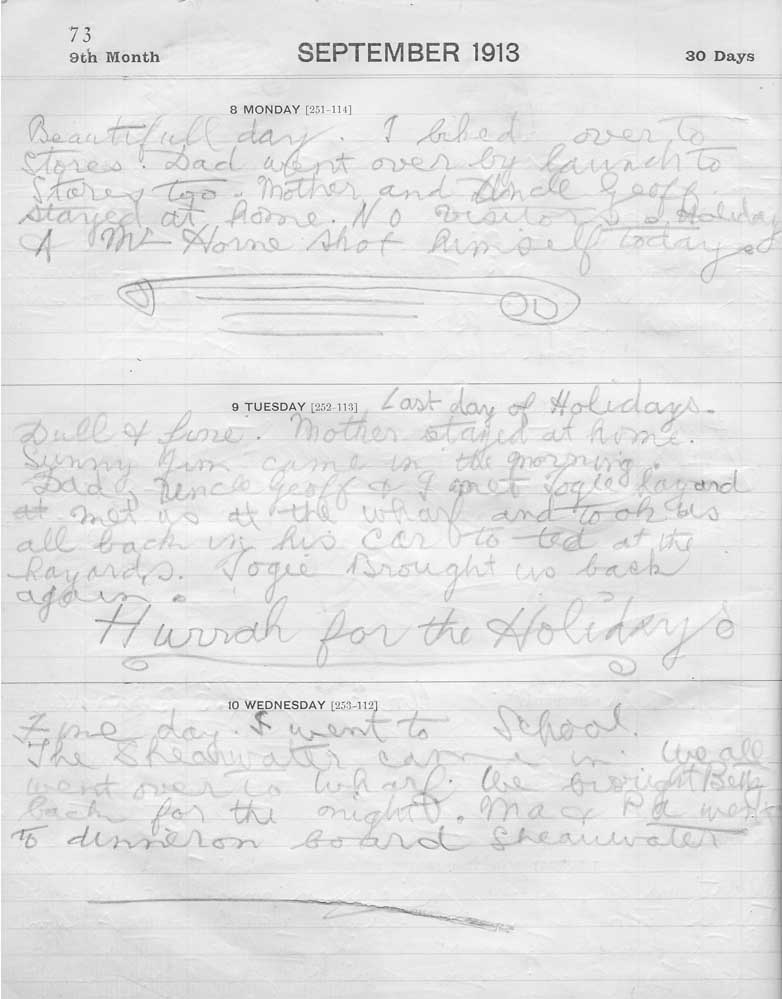 73
9th Month SEPTEMBER 1913 30 Days
8 MONDAY [251-114]
Beautifull day. I biked over to
Stores. Dad went over by launch to
Stores too. Mother and Uncle Geoff.
stayed at home. No visitors a Holiday
A Mr Horne shot himself today.
9 TUESDAY [252-113] Last day of Holidays.
Dull & fine. Mother stayed at home.
Sunny Jim came in the morning.
Dad, Uncle Geoff & I met Togie Layard
at met us at the wharf and took us
all back in his Car to tea at the
Layards. Togie Brought us back
again.
Hurrah for the Holidays
10 WEDNESDAY [253-112]
Fine day. I went to School.
The Shearwater came in. We all
went over to wharf. We brought
back for the night. Ma & Pa went
to dinner on board Shearwater